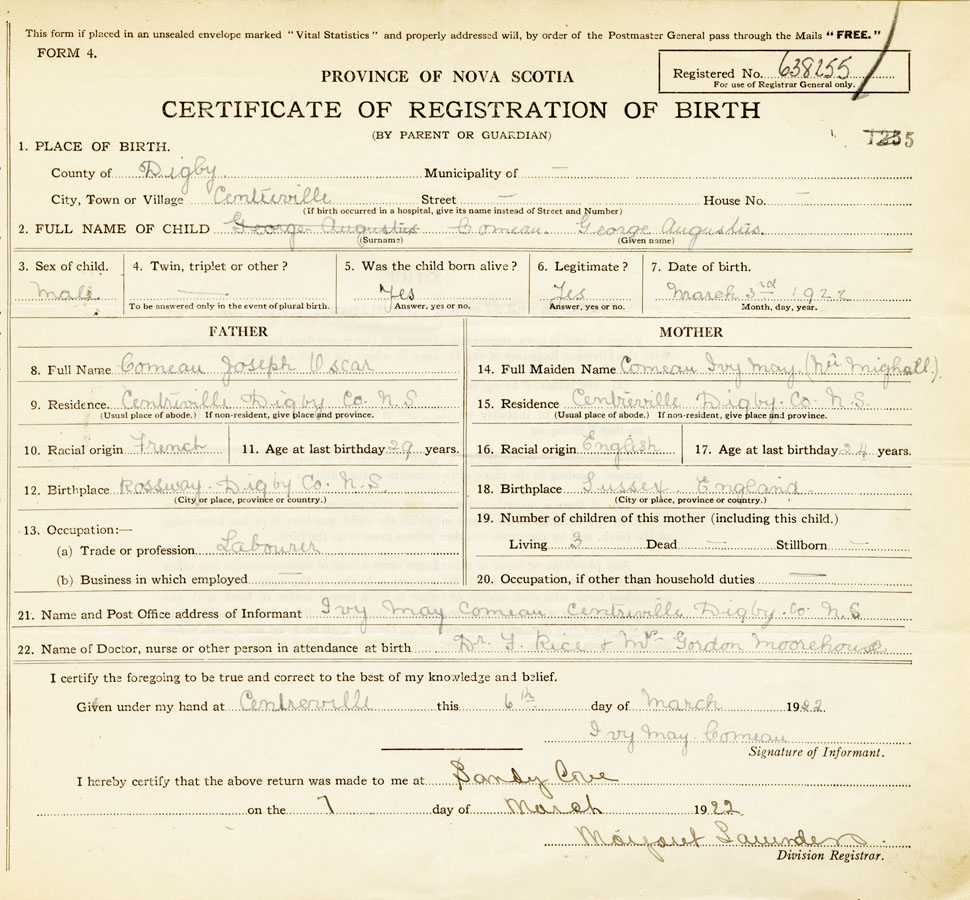 This form if placed in an unsealed envelope marked "Vital Statistics" and properly addressed will, by order of the Postmaster General pass through the Mails "FREE."
FORM 4.
Registered No. 638255
For use of Registrar General only.
PROVINCE OF NOVA SCOTIA
CERTIFICATE OF REGISTRATION OF BIRTH
(BY PARENT OR GUARDIAN)
1. PLACE OF BIRTH.
County of Digby Municipality of —
City, Town or Village Centreville Street — House No. —
(If birth occurred in a hospital, give its name instead of Street and Number)
2. FULL NAME OF CHILD George Augustus Comeau. George Augustus.
(Surname) (Given name)
3. Sex of child. 4. Twin, triplet or other? 5. Was the child born alive? 6. Legitimate? 7. Date of birth.
Male — Yes Yes March 3rd 1922
To be answered only in the event of plural birth. Answer, yes or no. Answer, yes or no. Month, day, year.
FATHER MOTHER
8. Full Name Comeau Joseph Oscar
14. Full Maiden Name Comeau Ivy May (Mighall).
9. Residence. Centreville Digby Co. N.S
(Usual place of abode.) If non-resident, give place and province.
15. Residence Centreville Digby. Co. N.S.
(Usual place of abode.) If non-resident, give place and province.
10. Racial origin French 11. Age at last birthday 29 years.
16. Racial origin English 17. Age at last birthday 24 years.
12. Birthplace Rossway. Digby Co. N.S.
(City or place, province or country.)
18. Birthplace Sussex. England
(City or place, province or country.)
13. Occupation:—
(a) Trade or profession Labourer
(b) Business in which employed —
19. Number of children of this mother (including this child.)
Living 3 Dead — Stillborn —
20. Occupation, if other than household duties —
21. Name and Post Office address of Informant Ivy May Comeau Centreville Digby. Co. N.S
22. Name of Doctor, nurse or other person in attendance at birth Dr. F. Rice + Mrs Gordon Moorehouse
I certify the foregoing to be true and correct to the best of my knowledge and belief.
Given under my hand at Centreville this 6th day of March 1922.
Ivy May. Comeau
Signature of Informant.
I hereby certify that the above return was made to me at Sandy Cove
on the 7 day of March 1922
Margaret Saunders
Division Registrar.